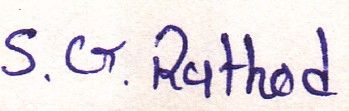 S. G. Rathod